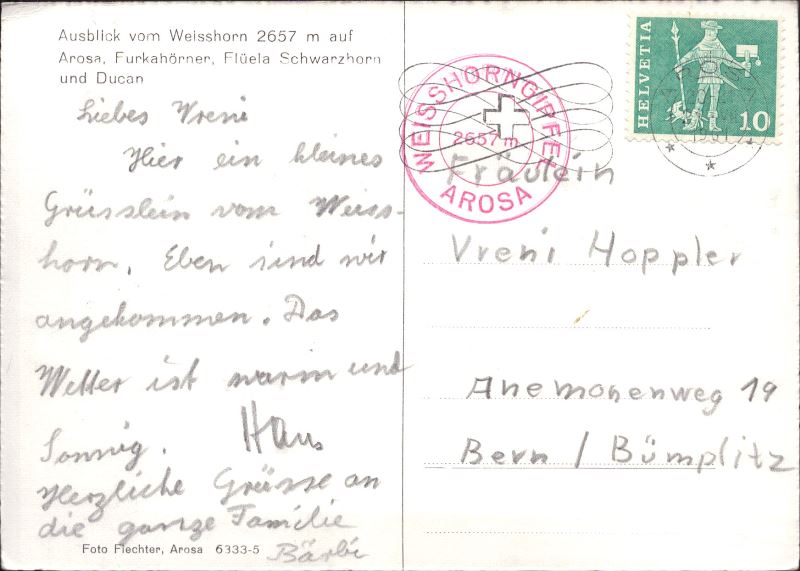 Ausblick vom Weisshorn 2657 m auf
Arosa, Furkahörner, Flüela Schwarzhorn
und Ducan
Liebes Vreni
Hier ein kleines
Grüsslein vom Weiss-
horn. Eben sind wir
angekommen. Das
Wetter ist warm und
Sonnig. Hans
Herzliche Grüsse an
die ganze Familie
Bärbi
Foto Flechter, Arosa 6333-5
WEISSHORNGIPFEL
2657 m
AROSA
HELVETIA
10
Fräulein
Vreni Hoppler
Anemonenweg 19
Bern / Bümplitz